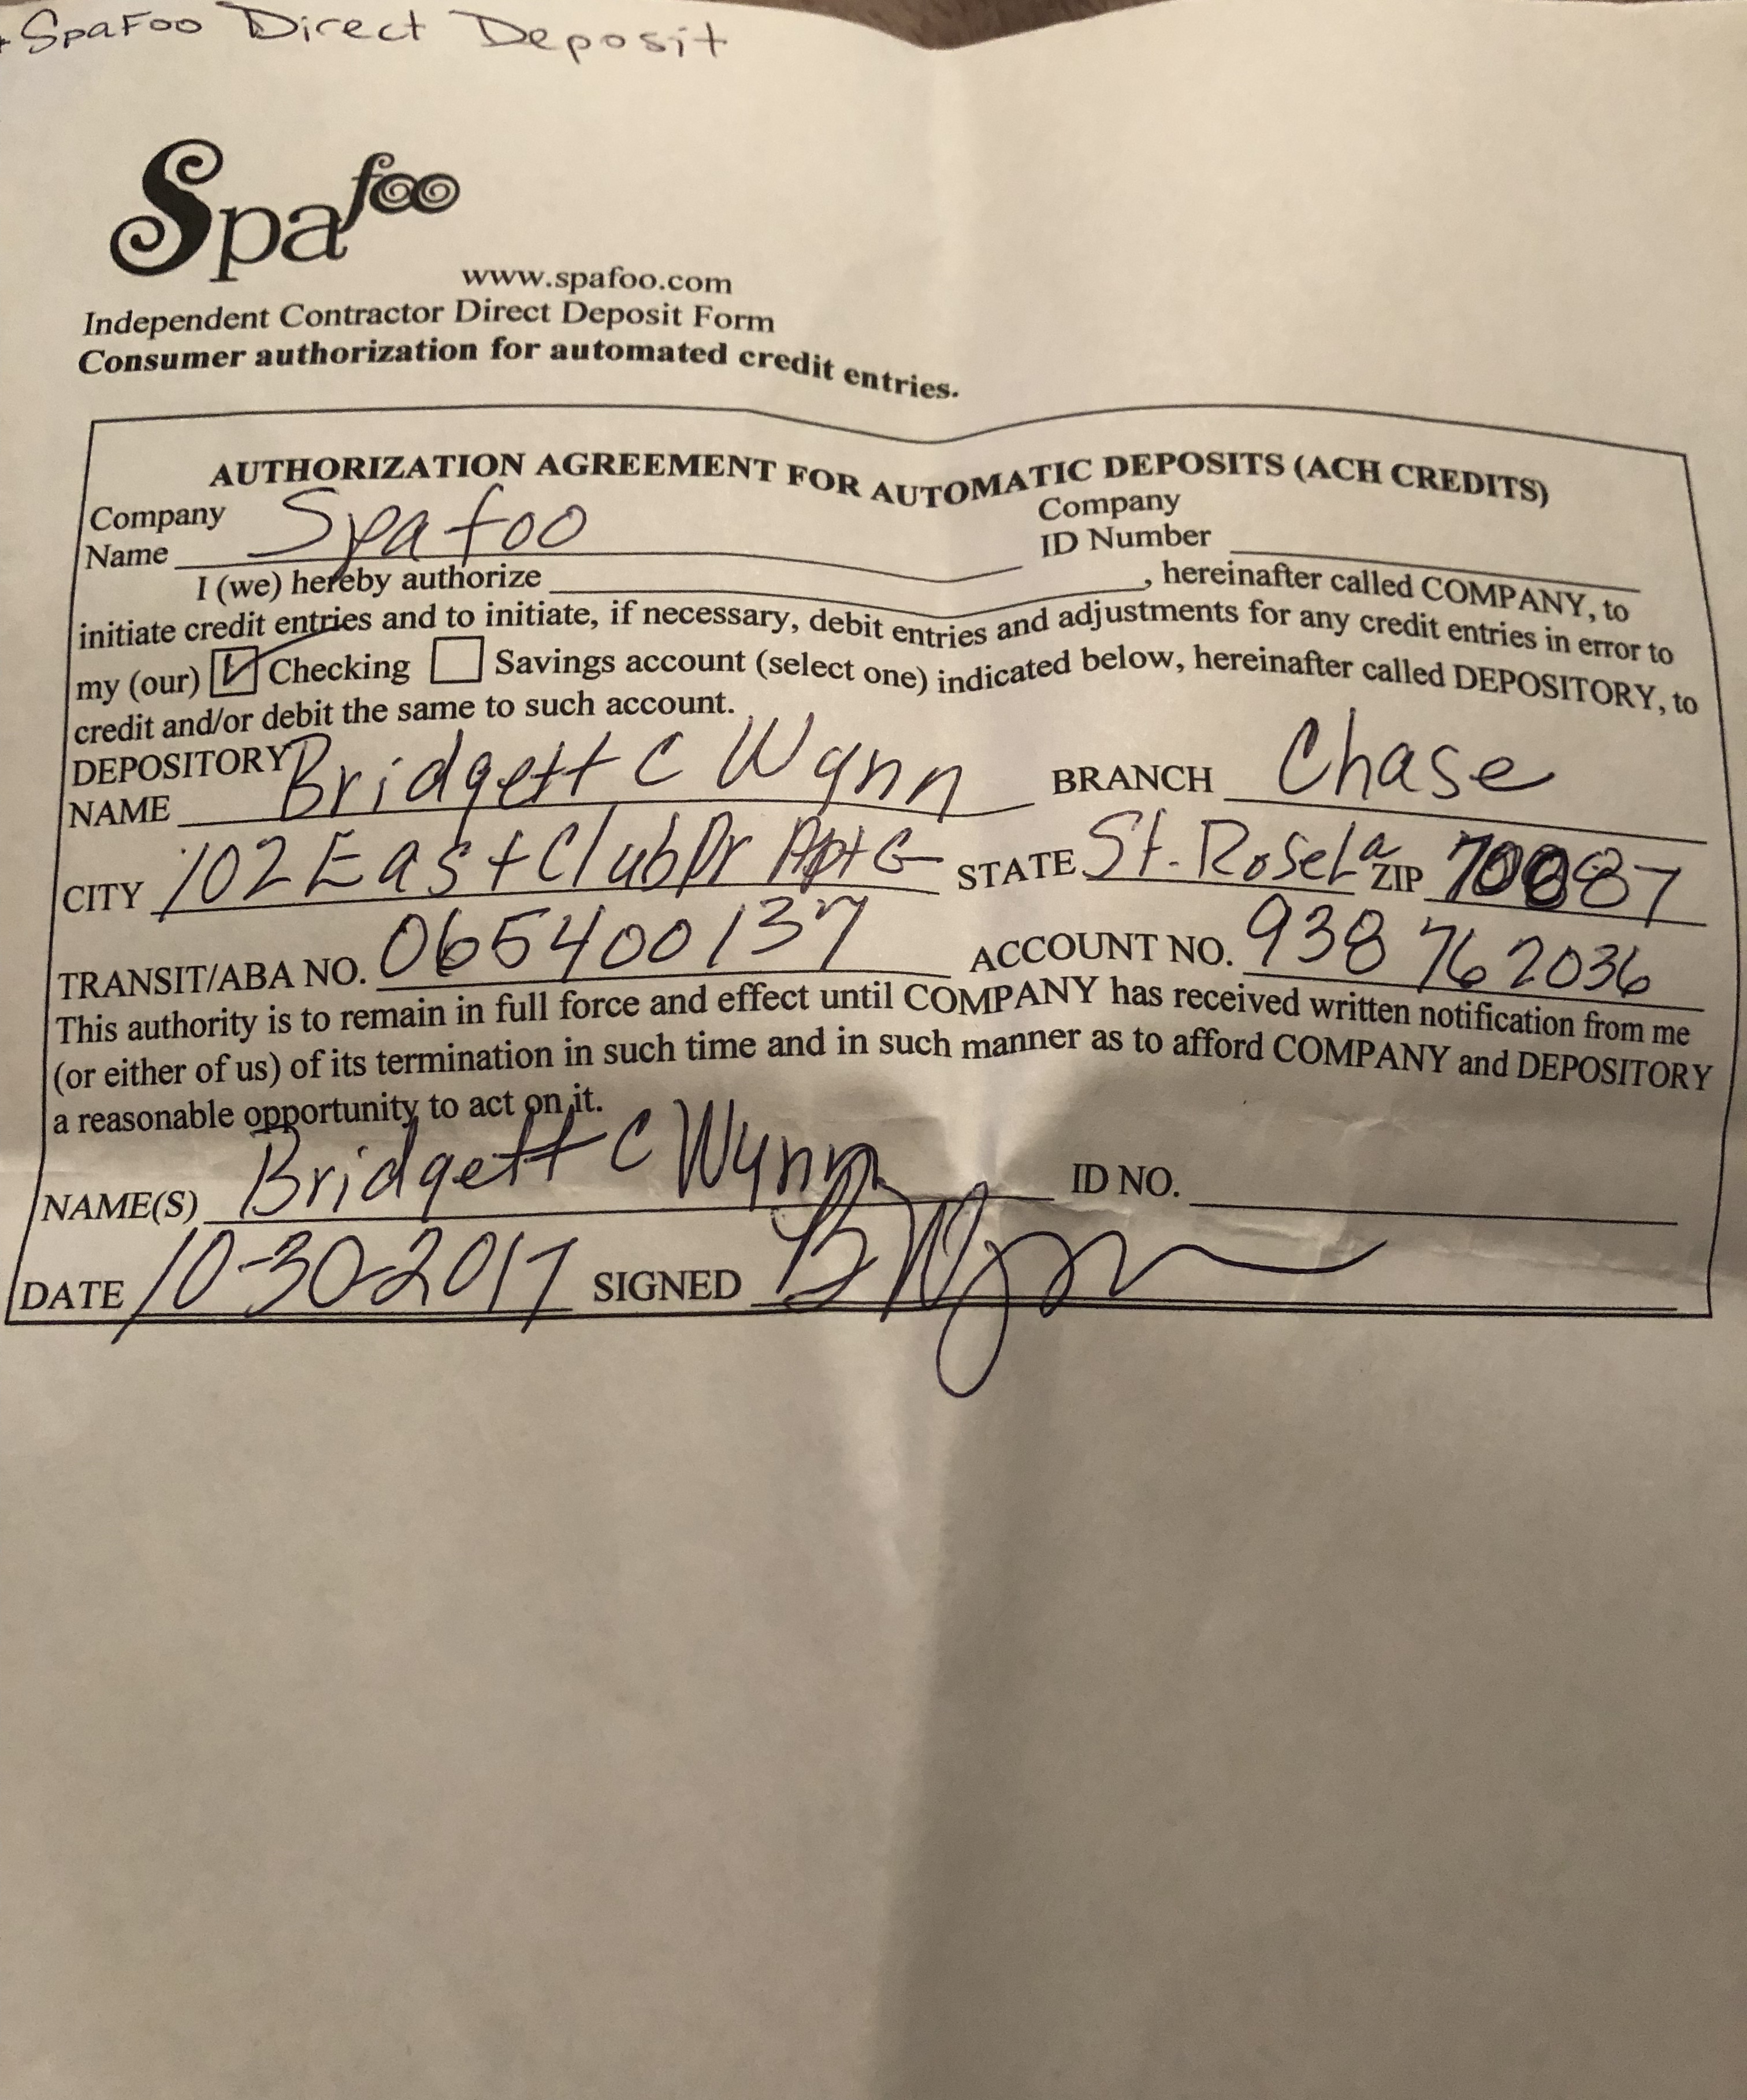 SpaFoo Direct Deposit
Spa foo
www.spafoo.com
Independent Contractor Direct Deposit Form
Consumer authorization for automated credit entries.
AUTHORIZATION AGREEMENT FOR AUTOMATIC DEPOSITS (ACH CREDITS)
Company Name Spa foo Company ID Number
I (we) hereby authorize , hereinafter called COMPANY, to
initiate credit entries and to initiate, if necessary, debit entries and adjustments for any credit entries in error to
my (our) Checking Savings account (select one) indicated below, hereinafter called DEPOSITORY, to
credit and/or debit the same to such account.
DEPOSITORY NAME Bridgett C Wynn BRANCH Chase
CITY 102 East Club Dr Apt G STATE St. Rose La ZIP 70087
TRANSIT/ABA NO. 065400137 ACCOUNT NO. 938762036
This authority is to remain in full force and effect until COMPANY has received written notification from me
(or either of us) of its termination in such time and in such manner as to afford COMPANY and DEPOSITORY
a reasonable opportunity to act on it.
NAME(S) Bridgett C Wynn ID NO.
DATE 10-30-2017 SIGNED B Wynn